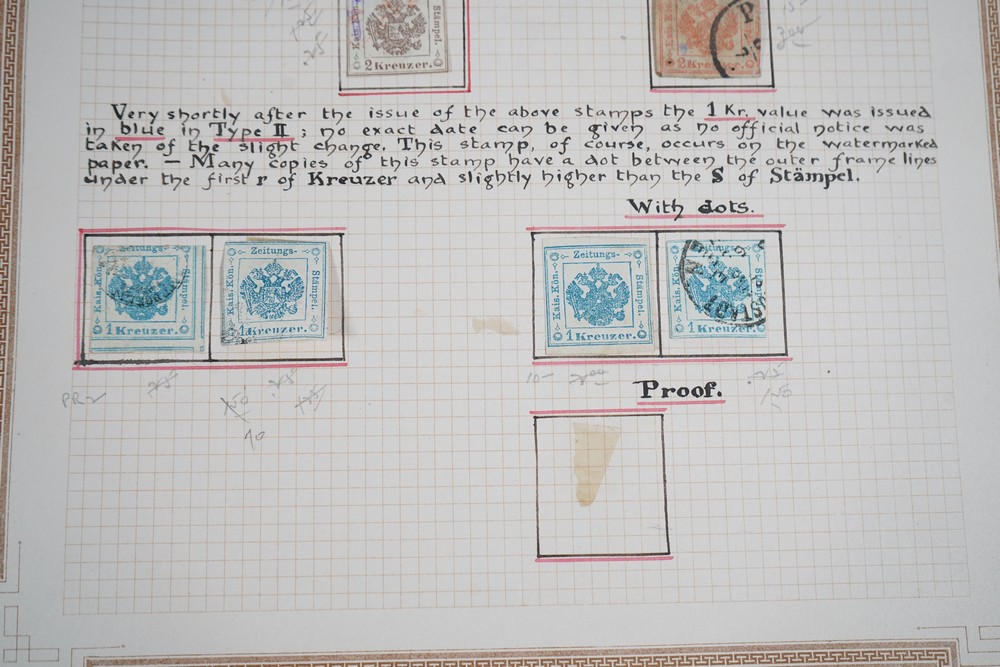 Kais. Kön. Stämpel.
2 Kreuzer.
2 Kreuzer.
Very shortly after the issue of the above stamps the 1 Kr. value was issued
in blue in Type II ; no exact date can be given as no official notice was
taken of the slight change. This stamp, of course, occurs on the watermarked
paper. — Many copies of this stamp have a dot between the outer frame lines
under the first r of Kreuzer and slightly higher than the S of Stämpel.
With dots.
Zeitungs-
Kais. Kön. Stämpel.
1 Kreuzer.
Zeitungs-
Kais. Kön. Stämpel.
1 Kreuzer.
Zeitungs-
Kais. Kön. Stämpel.
1 Kreuzer.
Zeitungs-
Kais. Kön.
1 Kreuzer.
Proof.